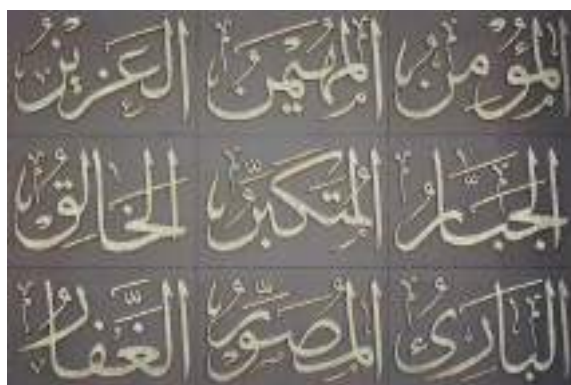 المُؤْمِنُ المُهَيْمِنُ العَزِيزُ
الجَبَّارُ المُتَكَبِّرُ الخَالِقُ
البَارِئُ المُصَوِّرُ الغَفَّارُ